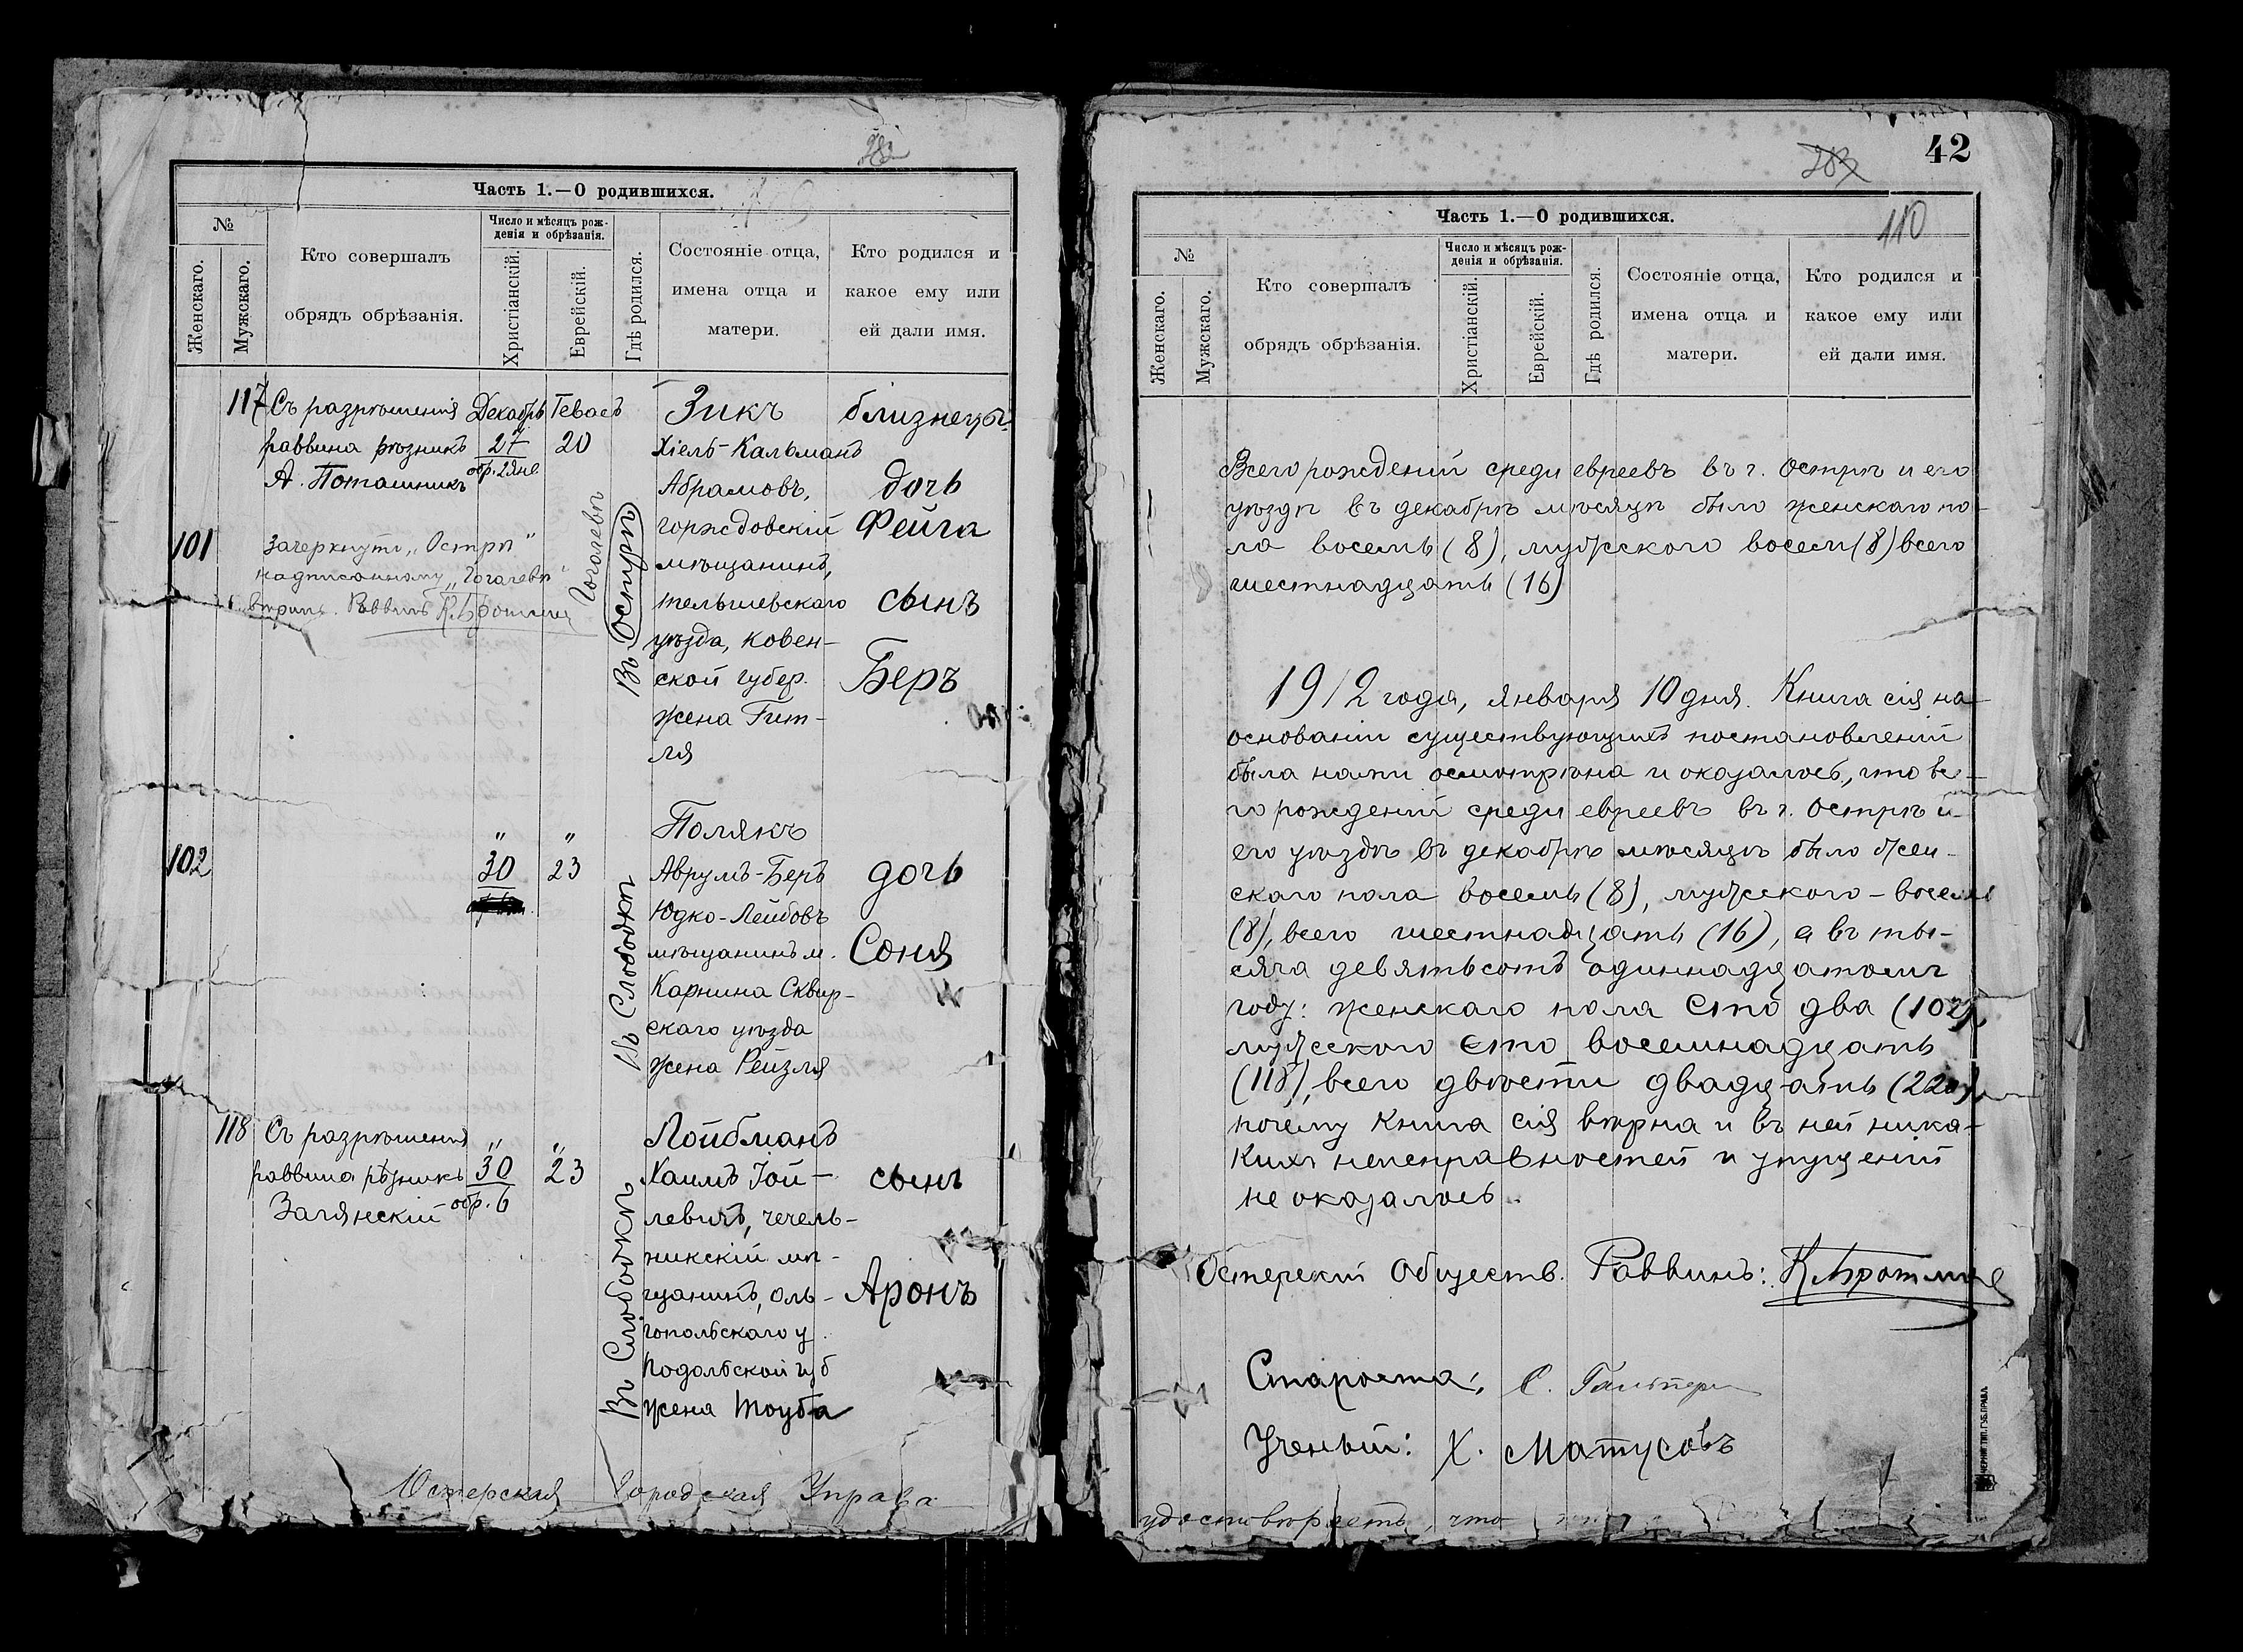 Часть 1.—О родившихся.
№
Женскаго.
Мужскаго.
Кто совершалъ
обрядъ обрѣзанія.
Число и мѣсяцъ рож-
денія и обрѣзанія.
Христіанскій.
Еврейскій.
Гдѣ родился.
Состояніе отца,
имена отца и
матери.
Кто родился и
какое ему или
ей дали имя.
117 Съ разрѣшенія Декабрь Теваеъ Зикъ близнецы
раввина рѣзникъ 27 20 Хіель-Кальманъ
А. Поташникъ обр. 2 янв Абрамовъ, дочь
горждовскій Фейга
101 Зачеркнуто „Острѣ“ мѣщанинъ,
надписанному „Гоголевѣ“ тельшевскаго сынъ
вѣрить. Раввинъ
Въ Острѣ
Гоголевѣ
уѣзда, ковен-
ской губер. Беръ
жена Гит-
ля
„ „ Полякъ
102 30 23 Аврумъ-Беръ дочь
Юдко-Лейбовъ
мѣщанинъ м. Соня
Въ Слободкѣ
Карнина Сквир-
скаго уѣзда
жена Рейзля
118 Съ разрѣшенія „ „ Лойбманъ
раввина рѣзникъ 30 23 Хаимъ Іой- сынъ
Залянскій обр. 6 левичъ, чечель-
Въ Слободкѣ
никскій мѣ-
щанинъ, оль- Аронъ
гопольскаго у.
Подольской губ
жена Тоуба
Остерская Городская Управа
42
110
Часть 1.—О родившихся.
№
Женскаго.
Мужскаго.
Кто совершалъ
обрядъ обрѣзанія.
Число и мѣсяцъ рож-
денія и обрѣзанія.
Христіанскій.
Еврейскій.
Гдѣ родился.
Состояніе отца,
имена отца и
матери.
Кто родился и
какое ему или
ей дали имя.
Всего рожденій среди евреевъ въ г. Острѣ и его
уѣздѣ въ декабрѣ мѣсяцѣ было женскаго по-
ла восемь (8), мужского восем (8) всего
шестнадцать (16)
1912 года, января 10 дня. Книга сія на
основаніи существующихъ постановленій
была нами осмотрѣна и оказалось, что все-
го рожденій среди евреевъ въ г. Острѣ и
его уѣздѣ въ декабрѣ мѣсяцѣ было жен-
скаго пола восемь (8), мужского - восемь
(8), всего шестнадцать (16), а въ ты-
сяча девятьсотъ одиннадцатомъ
году: женскаго пола сто два (102),
мужского сто восемнадцать
(118), всего двѣсти двадцать (220),
почему книга сія вѣрна и въ ней ника-
кихъ неисправностей и упущеній
не оказалось.
Остерскій Обществ. Раввинъ:
Староста:
Ученый: Х. Матусовъ
удостовѣряетъ, что